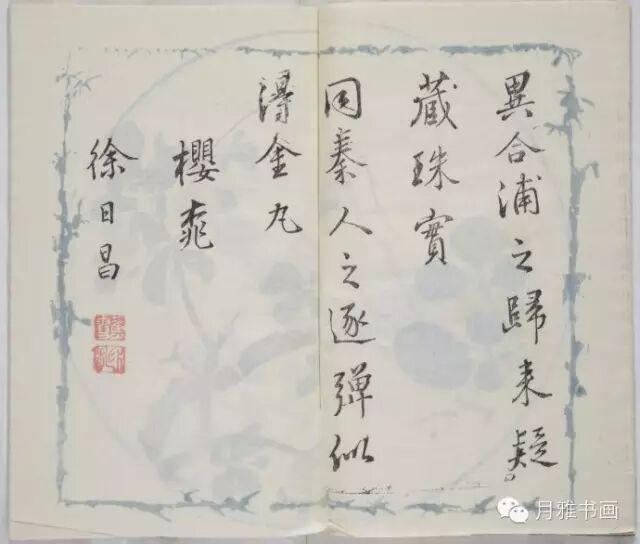 異合浦之歸来疑
藏珠實
同秦人之逐彈似
得金丸
櫻桃
徐日昌
月雅书画